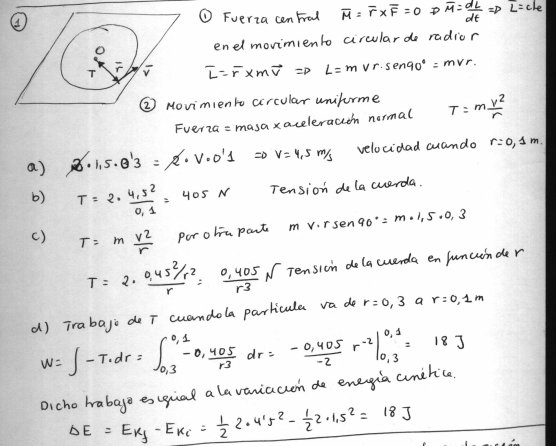 ① Fuerza central M̄ = r̄ x F̄ = 0 ⇒ M̄ = dL̄/dt ⇒ L̄ = cte
en el movimiento circular de radio r
L̄ = r̄ x mv̄ ⇒ L = m v r. sen90° = mvr.
O
T r̄ v̄
② Movimiento circular uniforme
Fuerza = masa x aceleración normal T = m v²/r
a) 2 · 1,5 · 0'3 = 2 · V · 0'1 ⇒ V = 4,5 m/s velocidad cuando r = 0,1 m.
b) T = 2 · 4,5²/0,1 = 405 N Tensión de la cuerda.
c) T = m v²/r por otra parte m v · r sen 90° = m · 1,5 · 0,3
T = 2 · 0,45²/r²/r = 0,405/r3 N Tensión de la cuerda en función de r
d) Trabajo de T cuando la partícula va de r = 0,3 a r = 0,1 m
W = ∫ -T · dr = ∫0,3 0,1 -0,405/r3 dr = -0,405/-2 r⁻² |0,3 0,1 = 18 J
Dicho trabajo es igual a la variación de energía cinética.
ΔE = EKf - EKi = 1/2 2 · 4'5² - 1/2 2 · 1,5² = 18 J